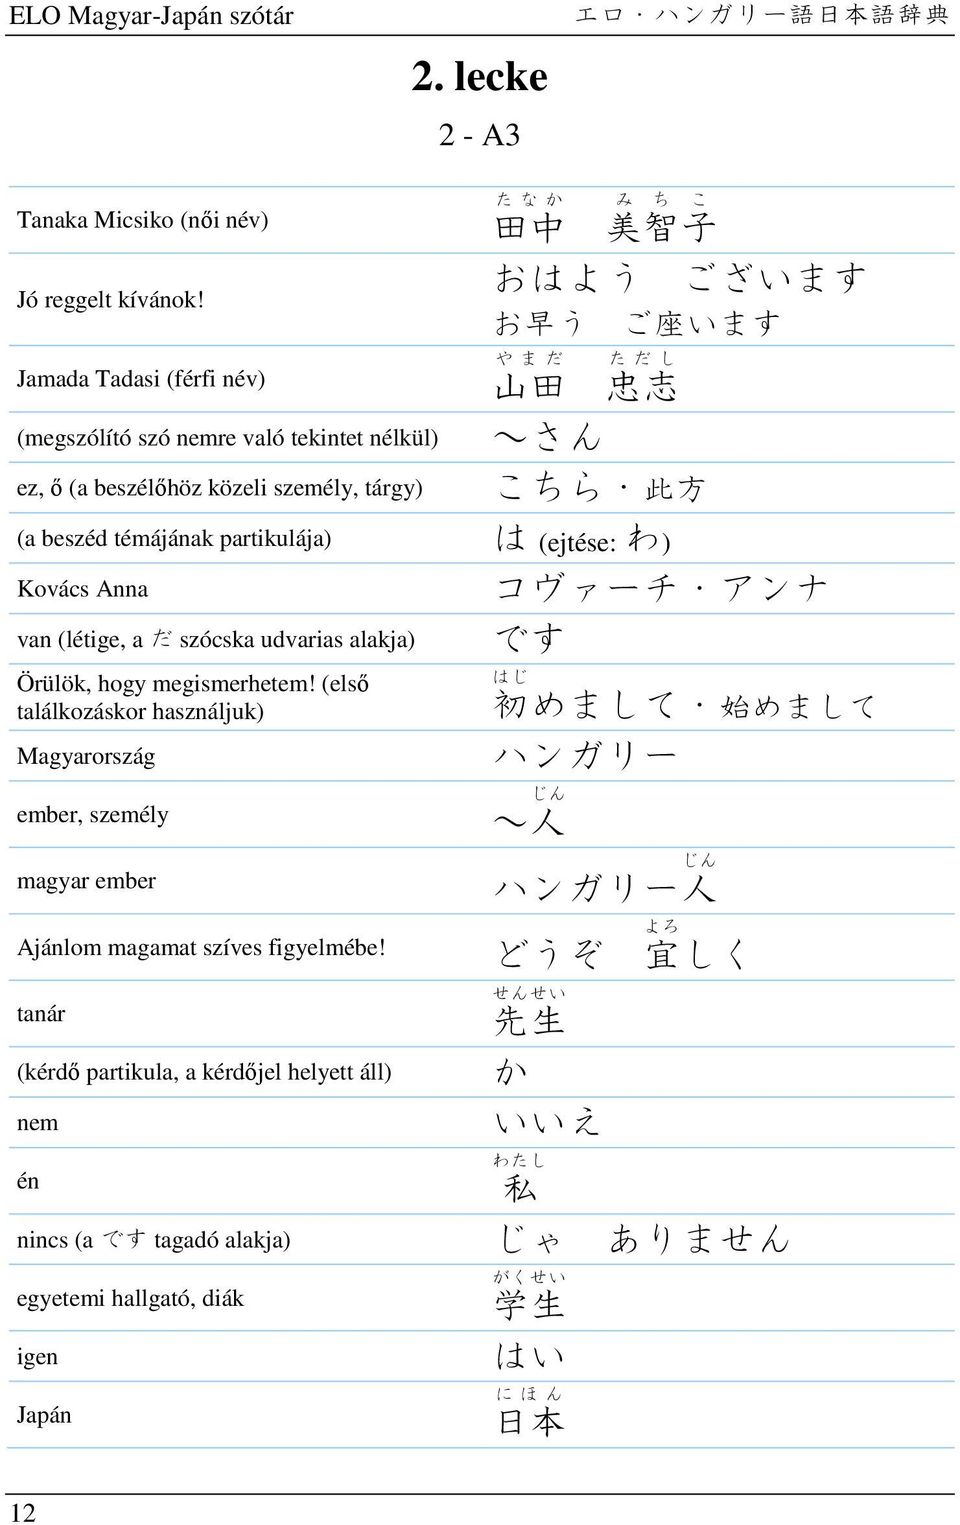 ELO Magyar-Japán szótár エロ・ハンガリー語日本語辞典
2. lecke
2 - A3
たなか みちこ
Tanaka Micsiko (női név) 田中 美智子
おはよう ございます
Jó reggelt kívánok!
お早う ご座います
やまだ ただし
Jamada Tadasi (férfi név) 山田 忠志
(megszólító szó nemre való tekintet nélkül) ～さん
ez, ő (a beszélőhöz közeli személy, tárgy) こちら・此方
(a beszéd témájának partikulája) は (ejtése: わ)
Kovács Anna コヴァーチ・アンナ
van (létige, a だ szócska udvarias alakja) です
はじ
Örülök, hogy megismerhetem! (első
találkozáskor használjuk) 初めまして・始めまして
Magyarország ハンガリー
じん
ember, személy ～人
じん
magyar ember ハンガリー人
よろ
Ajánlom magamat szíves figyelmébe! どうぞ 宜しく
せんせい
tanár 先生
(kérdő partikula, a kérdőjel helyett áll) か
nem いいえ
わたし
én 私
nincs (a です tagadó alakja) じゃ ありません
がくせい
egyetemi hallgató, diák 学生
igen はい
にほん
Japán 日本
12